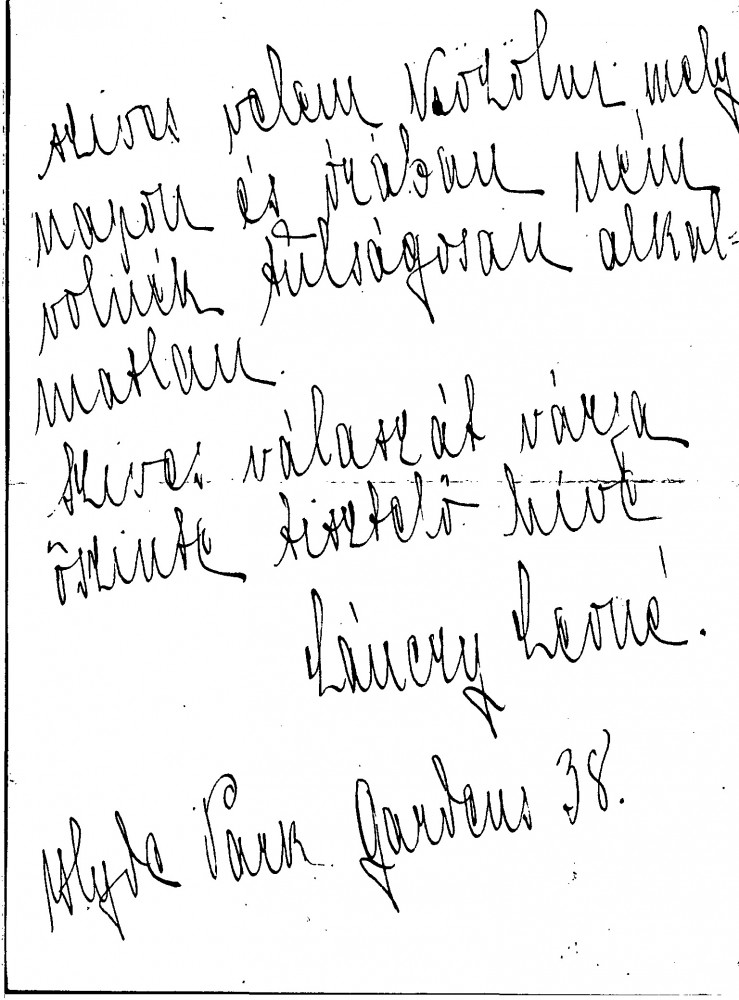 szives velem közölni mely
napon és órában nem
volnék túlságosan alkal=
matlan.
Szives válaszát várja
őszinte tisztelő híve
Lánczy Leóné.
Hyde Park Gardens 38.